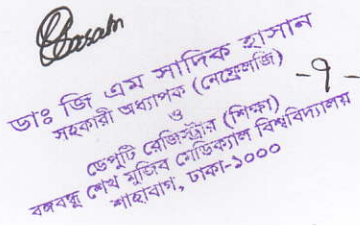 ডাঃ জি এম সাদিক হাসান
সহকারী অধ্যাপক (নেফ্রোলজি)
ও
ডেপুটি রেজিস্ট্রার (শিক্ষা)
বঙ্গবন্ধু শেখ মুজিব মেডিক্যাল বিশ্ববিদ্যালয়
শাহবাগ, ঢাকা-১০০০
-৭-